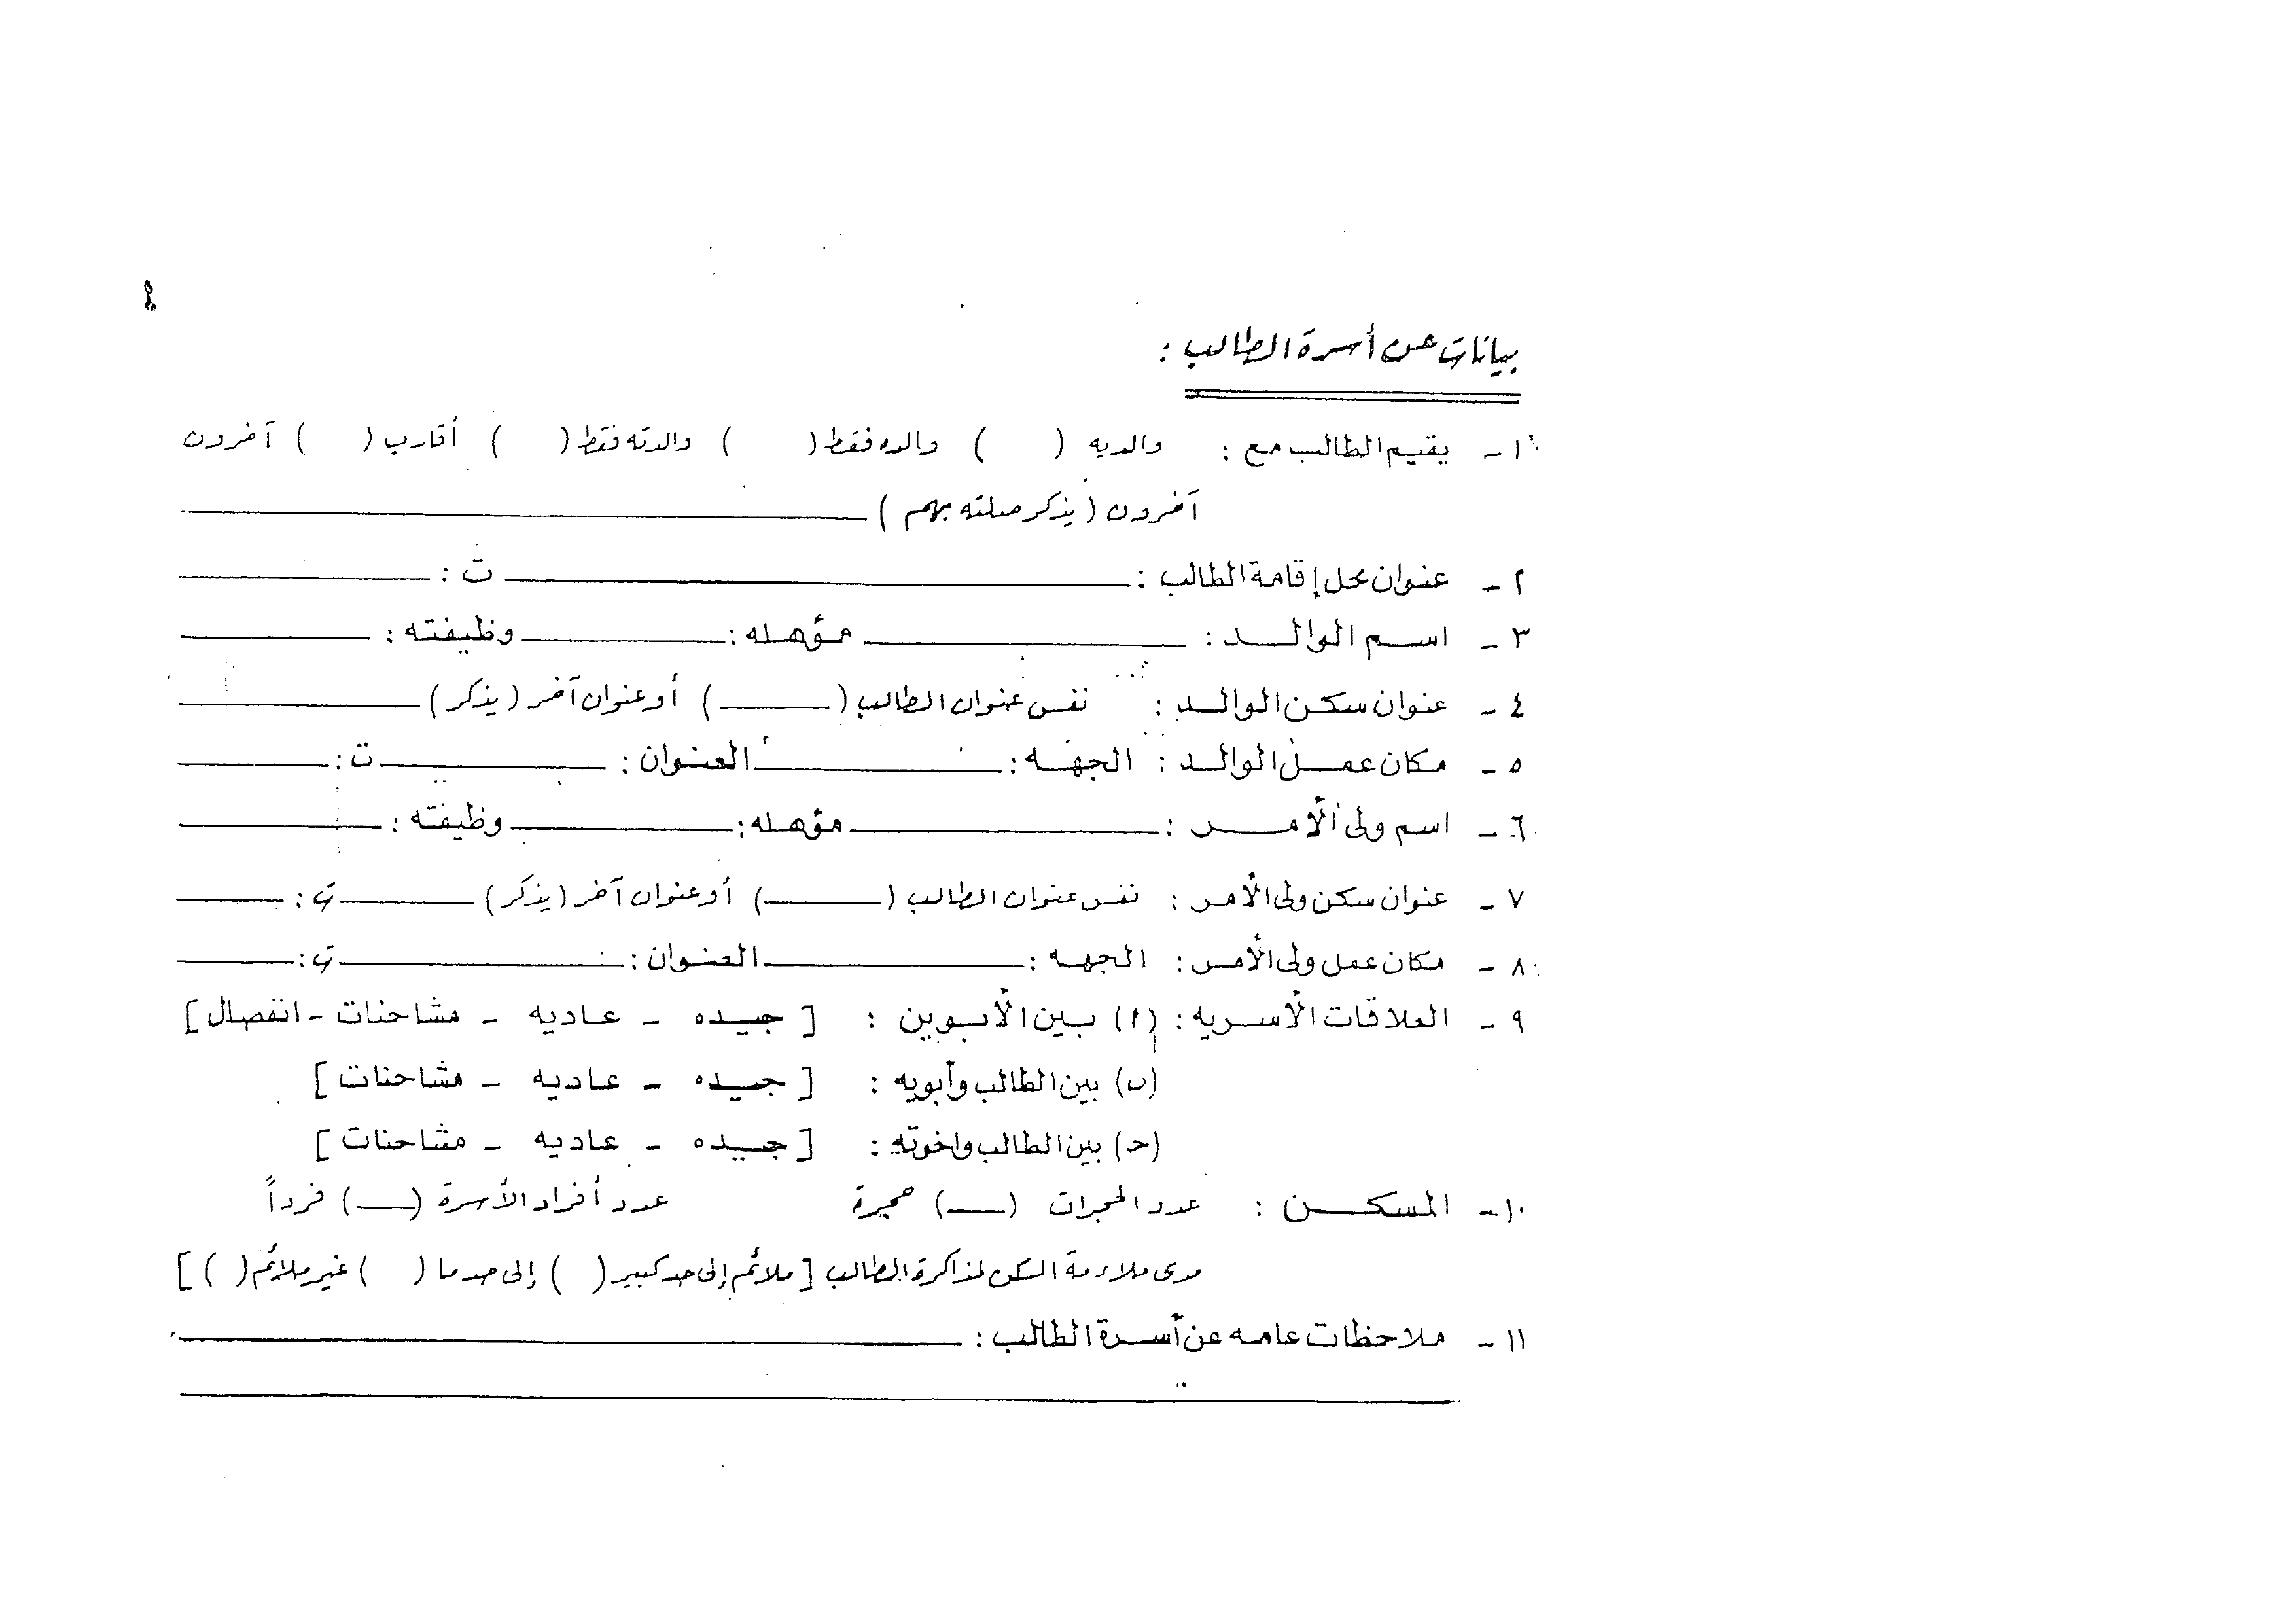 بيانات عن أسرة الطالب :
١ - يقيم الطالب مع : والديه ( ) والده فقط ( ) والدته فقط ( ) أقارب ( ) آخرون
آخرون ( يذكر صلته بهم ) ________
٢ - عنوان محل إقامة الطالب : ________ ت : ________
٣ - اسم الوالد : ________ مؤهله : ________ وظيفته : ________
٤ - عنوان سكن الوالد : نفس عنوان الطالب ( ____ ) أو عنوان آخر ( يذكر ) ________
٥ - مكان عمل الوالد : الجهه : ________ العنوان : ________ ت : ________
٦ - اسم ولى الأمر : ________ مؤهله : ________ وظيفته : ________
٧ - عنوان سكن ولى الأمر : نفس عنوان الطالب ( ____ ) أو عنوان آخر ( يذكر ) ________ ت : ________
٨ - مكان عمل ولى الأمر : الجهه : ________ العنوان : ________ ت : ________
٩ - العلاقات الأسريه : (ا) بين الأبوين : [ جيده - عاديه - مشاحنات - انفصال ]
(ب) بين الطالب وأبويه : [ جيده - عاديه - مشاحنات ]
(حـ) بين الطالب واخوته : [ جيده - عاديه - مشاحنات ]
١٠ - المسكن : عدد الحجرات ( ___ ) حجرة عدد أفراد الأسرة ( ___ ) فرداً
مدى ملاءمة السكن لمذاكرة الطالب [ ملائم إلى حد كبير ( ) إلى حد ما ( ) غير ملائم ( ) ]
١١ - ملاحظات عامه عن أسرة الطالب : ________